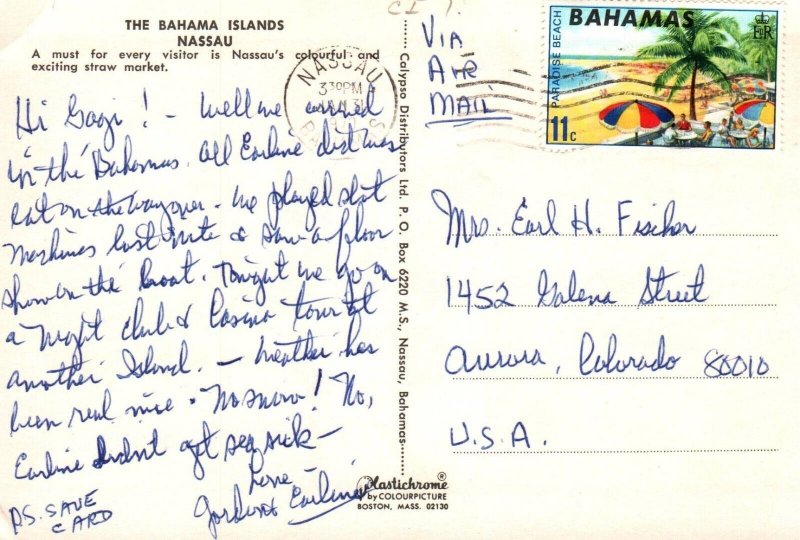 THE BAHAMA ISLANDS
NASSAU
A must for every visitor is Nassau's colourful and
exciting straw market.
Hi Gagi! - Well we arrived
in the Bahamas. All Earline did was
eat on the way over. We played slot
Machines last nite & saw a floor
show on the boat. Tonight we go on
a Night Club & Casino tour at
another Island. - Weather has
been real nice. No snow! No,
Earline didn't get sea sick -
Love
Gordon & Earline
P.S. SAVE
CARD
Calypso Distributors Ltd. P. O. Box 6220 M.S., Nassau, Bahamas
Plastichrome®
by COLOURPICTURE
BOSTON, MASS. 02130
NASSAU
330PM
VIA
AIR
MAIL
BAHAMAS
E II R
PARADISE BEACH
11c
Mrs. Earl H. Fischer
1452 Galena Street
Aurora, Colorado 80010
U.S.A.